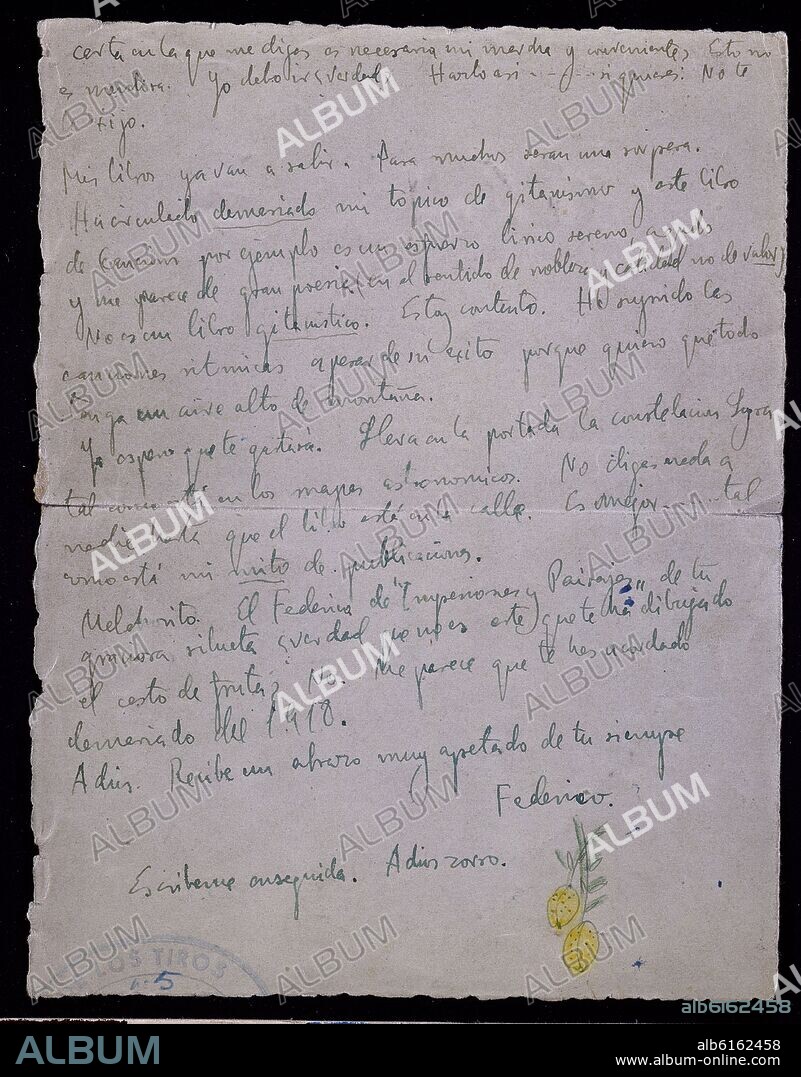 carta en la que me digas es necesaria mi marcha y conveniente, Esto no
es mentira. Yo debo ir ¿verdad? Hazlo así ... si quieres. No te
exijo.
Mis libros ya van a salir. Para muchos seran una sorpresa.
Ha circulado demasiado mi topico de gitanismo y este libro
de Canciones por ejemplo es un esfuerzo lirico sereno agudo
y me parece de gran poesia (en el sentido de nobleza y calidad no de valor)
No es un libro gitanistico. Estoy contento. He suprimido las
canciones ritmicas a pesar de su exito porque quiero que todo
tenga un aire alto de montaña.
Yo espero que te gustará. Lleva en la portada la constelacion Lyra
tal como está en los mapas astronomicos. No digas nada a
nadie hasta que el libro esté en la calle. Es mejor.... tal
como está mi mito de publicaciones.
Melchorito. El Federico de "Impresiones y Paisajes" de tu
graciosa silueta ¿verdad que no es este que te ha dibujado
el cesto de frutas? No. Me parece que te has acordado
demasiado del 1918.
Adios. Recibe un abrazo muy apretado de tu siempre
Federico.
Escribeme enseguida. Adios zorro.
LOS TIROS
5
ALBUM
alb6162458
ALBUM
alb6162458
www.album-online.com